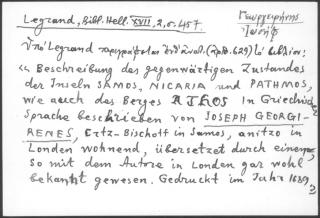 Γεωργειρήνης
Ἰωσήφ
Legrand, Bibl. Hell. XVII, 2, σ. 457.
Ὑπὸ Legrand περιγράφεται (ἀρ. 629) τὸ βιβλίον:
« Beschreibung des gegenwärtigen Zustandes
der Inseln SAMOS, NICARIA und PATHMOS,
wie auch des Berges ATHOS in Griechisch
Sprache beschrieben von JOSEPH GEORGI-
RENES, Ertz-Bischoff in Samos, anitzo in
London wohnend, übersetzet durch einem,
so mit dem Autore in London gar wohl
bekannt gewesen. Gedruckt im Jahr 1689,